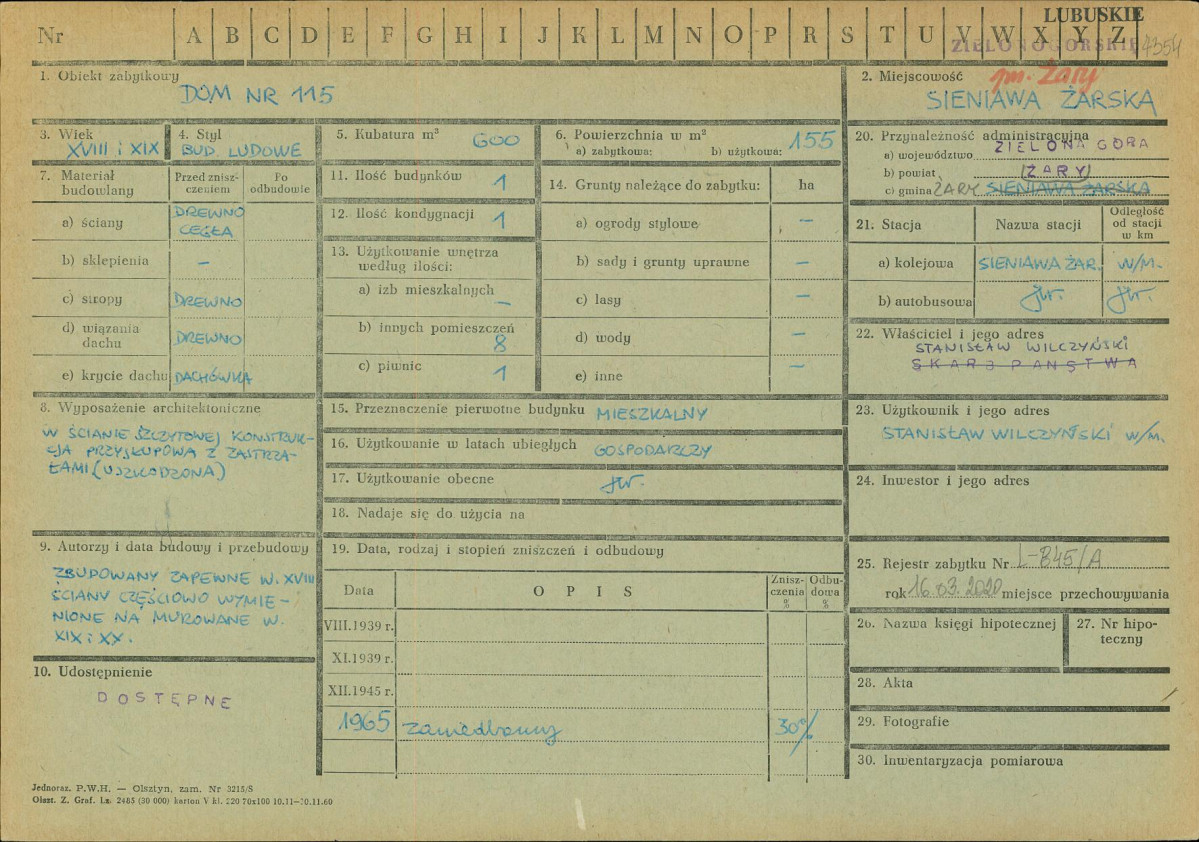 LUBUSKIE
Nr A B C D E F G H I J K L M N O P R S T U V W X Y Z
ZIELONOGÓRSKIE 4354
1. Obiekt zabytkowy
DOM NR 115
2. Miejscowość pow. Żary
SIENIAWA ŻARSKA
3. Wiek
XVIII i XIX
4. Styl
BUD. LUDOWE
5. Kubatura m³ 600
6. Powierzchnia w m²
a) zabytkowa: b) użytkowa: 155
20. Przynależność administracyjna
a) województwo ZIELONA GÓRA
b) powiat (ŻARY)
c) gmina ŻARY SIENIAWA ŻARSKA
7. Materiał budowlany
Przed zniszczeniem
Po odbudowie
a) ściany DREWNO
CEGŁA
b) sklepienia –
c) stropy DREWNO
d) wiązania dachu DREWNO
e) krycie dachu DACHÓWKA
11. Ilość budynków 1
12. Ilość kondygnacji 1
13. Użytkowanie wnętrza
według ilości:
a) izb mieszkalnych –
b) innych pomieszczeń 8
c) piwnic 1
14. Grunty należące do zabytku: ha
a) ogrody stylowe –
b) sady i grunty uprawne –
c) lasy –
d) wody –
e) inne –
21. Stacja Nazwa stacji Odległość od stacji w km
a) kolejowa SIENIAWA ŻAR. W/M.
b) autobusowa jw. jw.
22. Właściciel i jego adres
STANISŁAW WILCZYŃSKI
SKARB PAŃSTWA
8. Wyposażenie architektoniczne
W ŚCIANIE SZCZYTOWEJ KONSTRUK-
CJA PRZYSŁUPOWA Z ZASTRZA-
ŁAMI (USZKODZONA)
15. Przeznaczenie pierwotne budynku MIESZKALNY
16. Użytkowanie w latach ubiegłych GOSPODARCZY
17. Użytkowanie obecne jw.
18. Nadaje się do użycia na
23. Użytkownik i jego adres
STANISŁAW WILCZYŃSKI W/M.
24. Inwestor i jego adres
9. Autorzy i data budowy i przebudowy
ZBUDOWANY ZAPEWNE W. XVIII
ŚCIANY CZĘŚCIOWO WYMIE-
NIONE NA MUROWANE W.
XIX i XX.
10. Udostępnienie
DOSTĘPNE
19. Data, rodzaj i stopień zniszczeń i odbudowy
Data OPIS Zniszczenia % Odbudowa %
VIII.1939 r.
XI.1939 r.
XII.1945 r.
1965 zaniedbany 30%
25. Rejestr zabytku Nr L-845/A
rok 16.03.2020 miejsce przechowywania
26. Nazwa księgi hipotecznej
27. Nr hipoteczny
28. Akta
29. Fotografie
30. Inwentaryzacja pomiarowa
Jednoraz. P.W.H. — Olsztyn, zam. Nr 3215/S
Olszt. Z. Graf. Lz. 2485 (30 000) karton V kl. 220 70x100 10.11—20.11.60